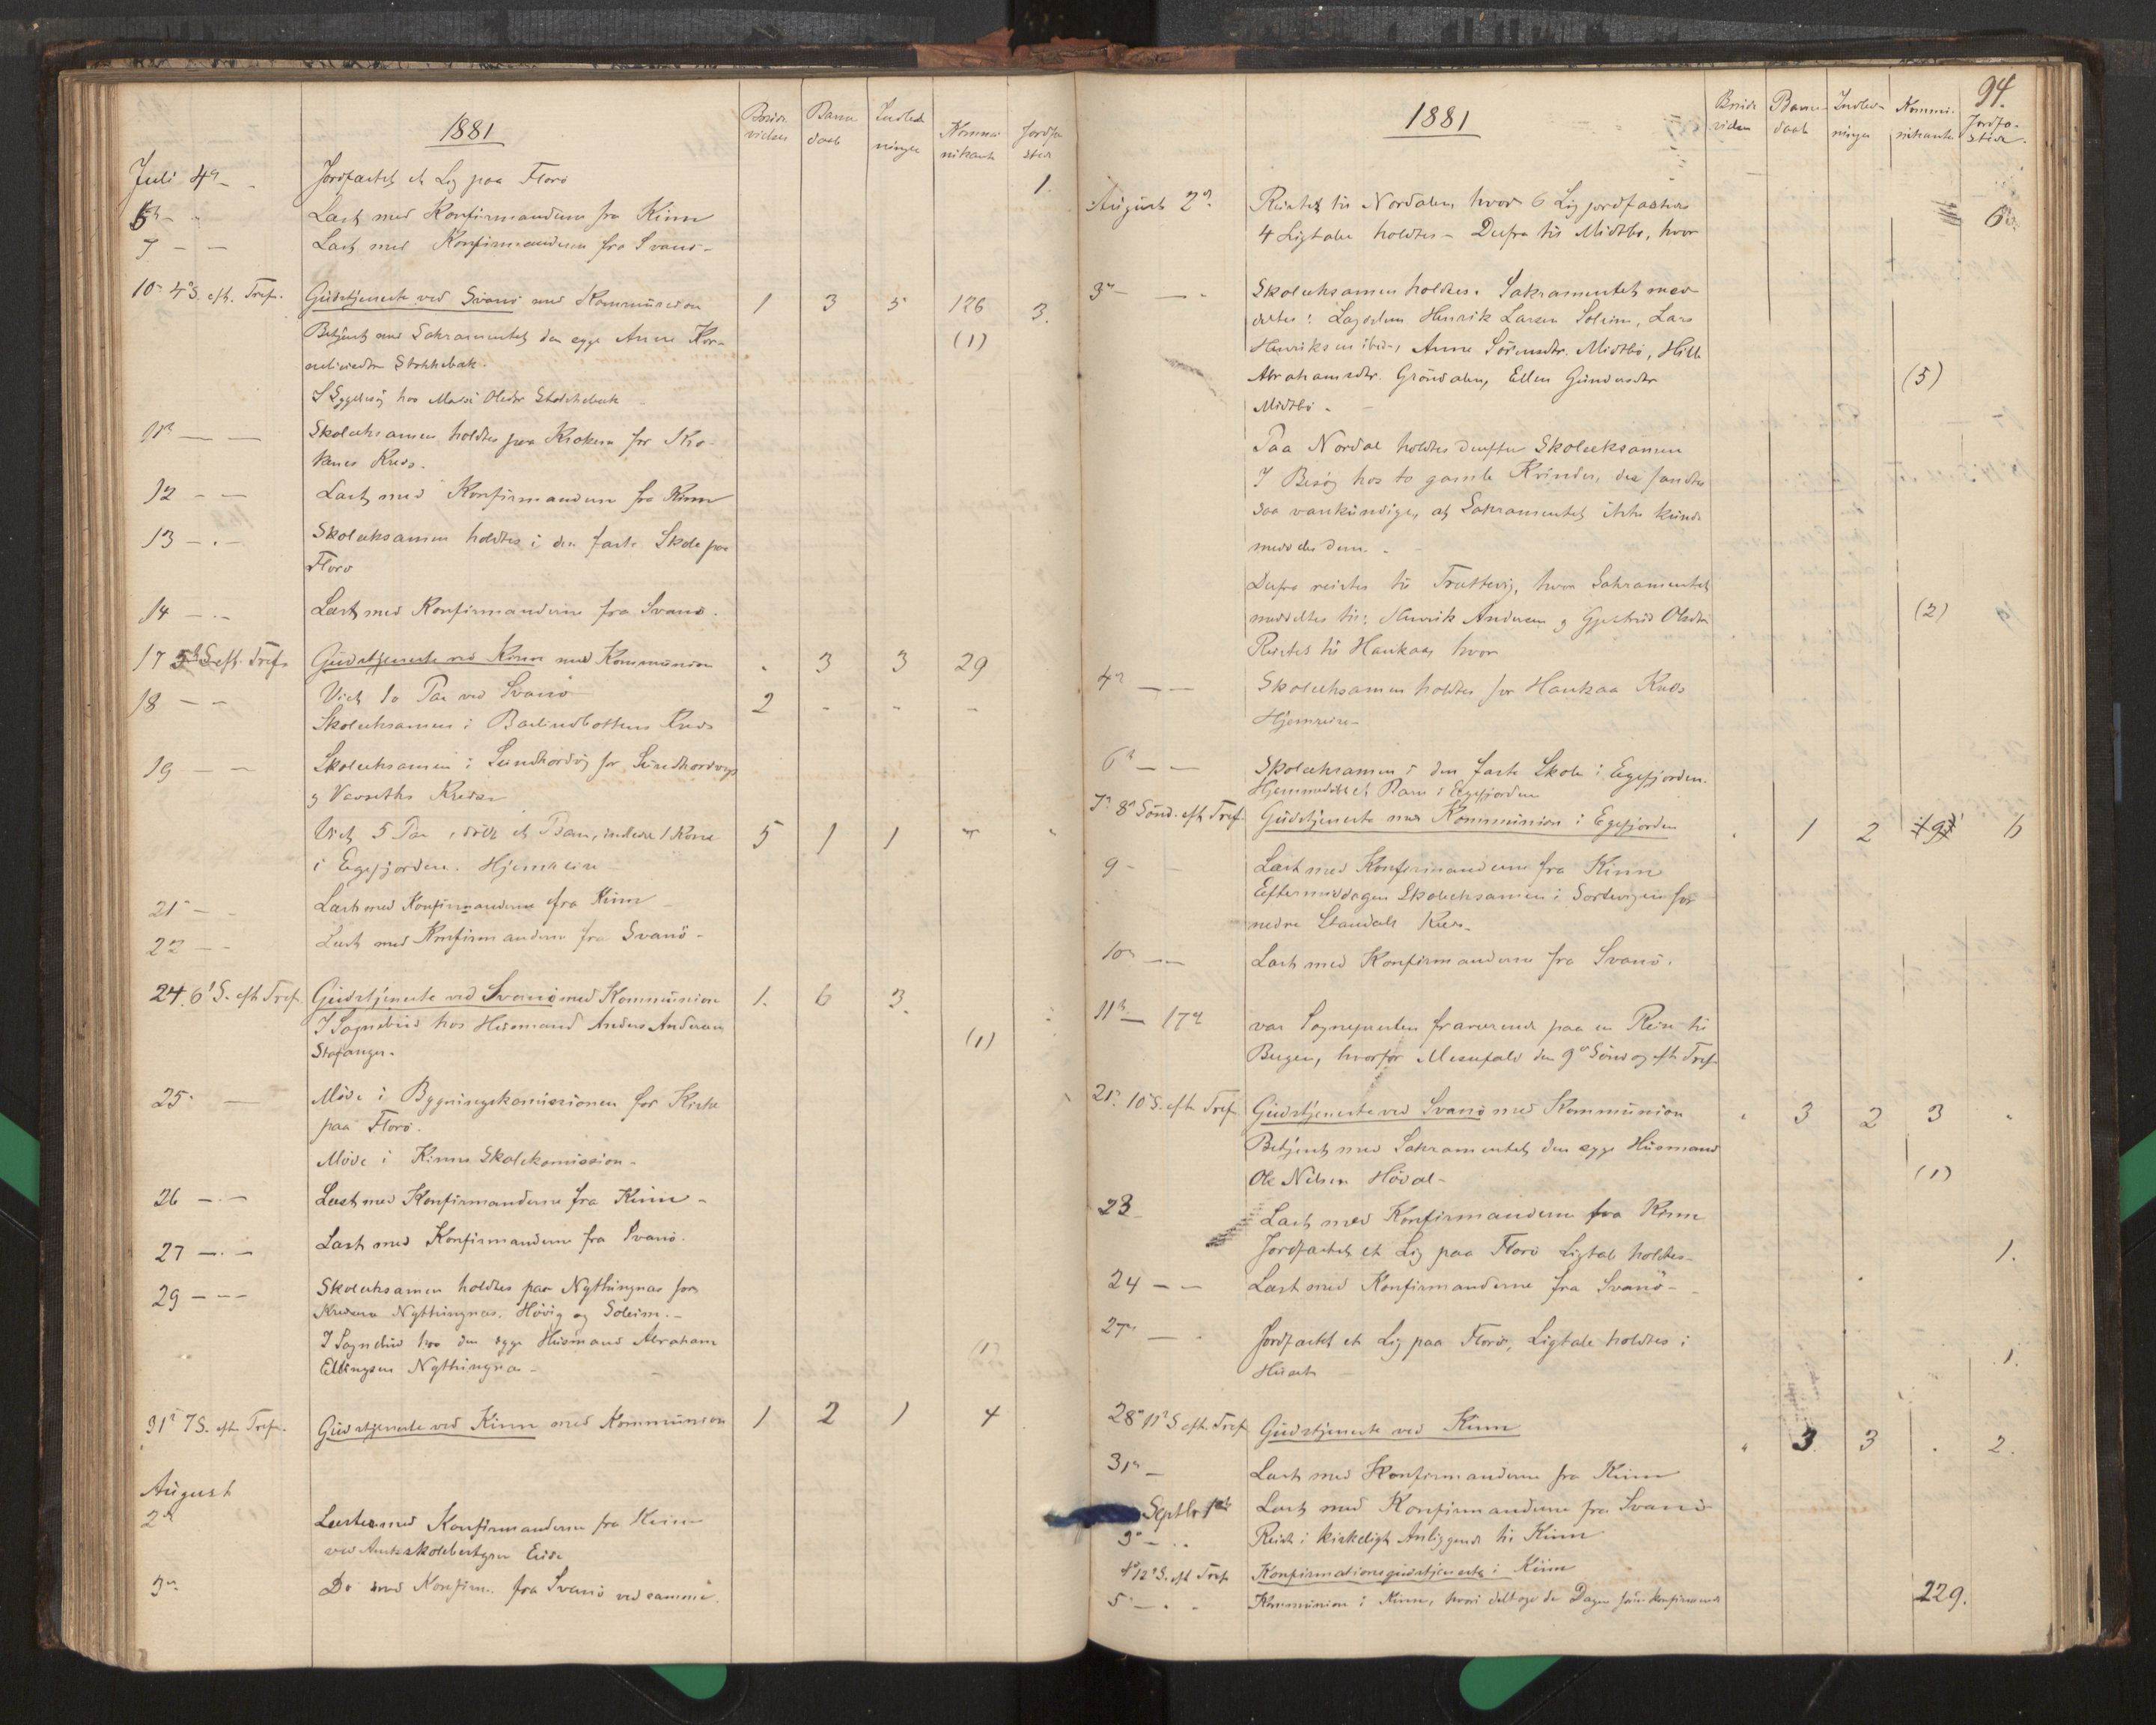 1881
Brudevielser Barnedaab Indledninger Kommunikanter Jordfæstelser
Juli 4de - Jordfæstet et Lig paa Florö 1.
6te - Læst med Konfirmanderne fra Kinn
7 - - Læst med Konfirmanderne fra Svanö -
10de 4de S. eft. Tref. Gudstjeneste ved Svanö med Kommunion 1 3 5 126 3.
Betjent med Sakramentet den syge Anne Kor- (1)
neliusdtr Stokkebek.
I Sygebesøg hos Mari Olsdtr Stokkebek -
11te - - Skoleeksamen holdtes paa Kroken for Kro-
kenes Kreds.
12 - - Læst med Konfirmanderne fra Kinn
13 - - Skoleeksamen holdtes i den faste Skole paa
Florö
14 - - Læst med Konfirmanderne fra Svanö.
17 5te S. eft. Tref. Gudstjeneste ved Kinn med Kommunion . 3 3 29
18 - - Viet to Par ved Svanö 2 - - -
Skoleeksamen i Barlindbottens Kreds
19 - - Skoleeksamen i Sundhordvig for Sundhordvigs
og Vasseths Kredse
Viet 5 Par, döbt et Barn, indledet 1 Kone 5 1 1 - "
i Eegefjorden. Hjemreise
21 - - Læst med Konfirmanderne fra Kinn -
22 - - Læst med Konfirmanderne fra Svanö -
24. 6te S. eft Tref. Gudstjeneste ved Svanö med Kommunion 1. 6 3.
I Sognebud hos Husmand Anders Andersen (1)
Stavanger.
25 - Möde i Bygningskomissionen for Kirke
paa Florö.
Möde i Kinns Skolekomission -
26 - - Læst med Konfirmanderne fra Kinn -
27 - - Læst med Konfirmanderne fra Svanö.
29 - - - Skoleeksamen holdtes paa Nyttingnæs for
Kredsene Nyttingnæs, Hövig og Soleim. -
I Sognebud hos den syge Husmand Abraham (1)
Ellingsen Nyttingnæs -
31te 7 S. eft. Tref. Gudstjeneste ved Kinn med Kommunion 1 2 1 4
August
2de Læstes med Konfirmanderne fra Kinn
ved Amtsskolebestyrer Eide
3de Do med Konfirm. fra Svanö ved samme.
94.
1881
Brudevielser Barnedaab Indledninger Kommunikanter Jordfæstelser
August 2de Reistes til Nordalen, hvor 6 Lig jordfæstedes 6
4 Ligtaler holdtes - Derfra til Midtbö, hvor
3die - - Skoleeksamen holdtes. Sakramentet med-
deltes: Lægdslem Henrik Larsen Soleim, Lars
Henriksen ibid., Anne Sörensdtr. Midtbö, Hille
Abrahamsdtr. Gröndalen, Ellen Gundersdtr (5)
Midtbö -
Paa Nordal holdtes derefter Skoleeksamen
I Besög hos to gamle Kvinder, der fandtes
saa vankundige, at Sakramentet ikke kunde
meddeles dem. -
Derfra reistes til Trættevig, hvor Sakramentet (2)
meddeltes til: Henrik Andersen og Gjertrud Olsdtr
Reistes til Haukaa, hvor
4de - - Skoleeksamen holdtes for Haukaa Kreds
Hjemreise -
6te - - Skoleeksamen i den faste Skole i Eegefjorden.
Hjemmedöbt et Barn i Egefjorden
7de 8de Sönd. eft Tref Gudstjeneste med Kommunion i Egefjorden . 1 2 6
9 - - Læst med Konfirmanderne fra Kinn
Eftermiddagen Skoleeksamen i Sortevigen for
nedre Standals Kreds.
10de - - Læst med Konfirmanderne fra Svanö.
11te - 17de var Sognepresten fraværende paa en Reise til
Bergen, hvorfor Messefald den 9de Söndag eft. Tref.
21de 10 S. eft. Tref. Gudstjeneste ved Svanö med Kommunion " 3 2 3 "
Betjent med Sakramentet den syge Husmand
Ole Nilsen Hövdl - (1)
23 Læst med Konfirmanderne fra Kinn
Jordfæstet et Lig paa Florö Ligtale holdtes - 1.
24 - - Læst med Konfirmanderne fra Svanö -
27de - Jordfæstet et Lig paa Florö, Ligtale holdtes i
Huset 1.
28de 11te S. eft. Tref Gudstjeneste ved Kinn " 3. 3 . 2.
31te - Læst med Konfirmanderne fra Kinn
Septbr 1ste Læst med Konfirmanderne fra Svanö
3die - Reist i kirkeligt Anliggende til Kinn
4de 12te S. eft Tref Konfirmationsgudstjeneste i Kinn
5 - - Kommunion i Kinn, hvori deltoge de Dagen för konfirmerede 229.